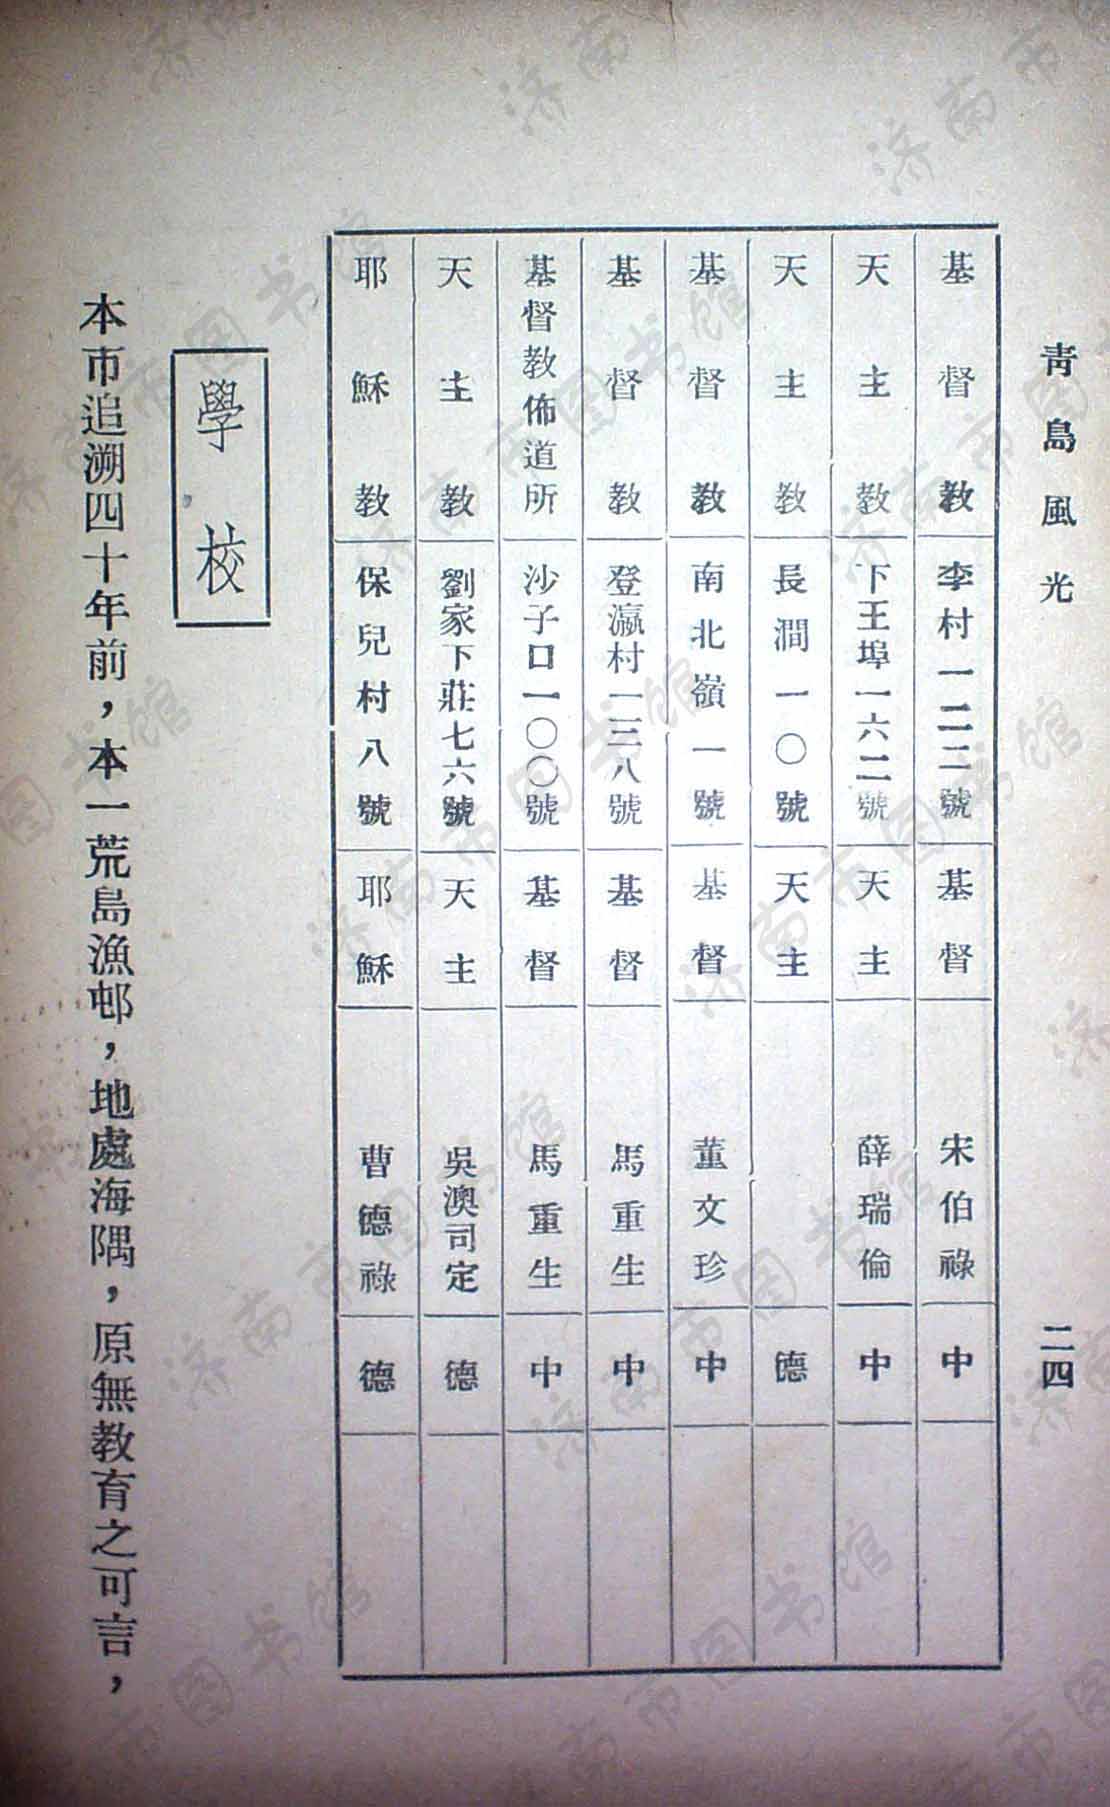 青島風光 二四
基督教 李村一二二號 基督 宋伯祿 中
天主教 下王埠一六二號 天主 薛瑞倫 中
天主教 長澗一〇號 天主 德
基督教 南北嶺一號 基督 董文珍 中
基督教 登瀛村一三八號 基督 馬重生 中
基督教佈道所 沙子口一〇〇號 基督 馬重生 中
天主教 劉家下莊七六號 天主 吳澳司定 德
耶穌教 保兒村八號 耶穌 曹德祿 德
學校
本市追溯四十年前，本一荒島漁邨，地處海隅，原無教育之可言，
济南市图书馆